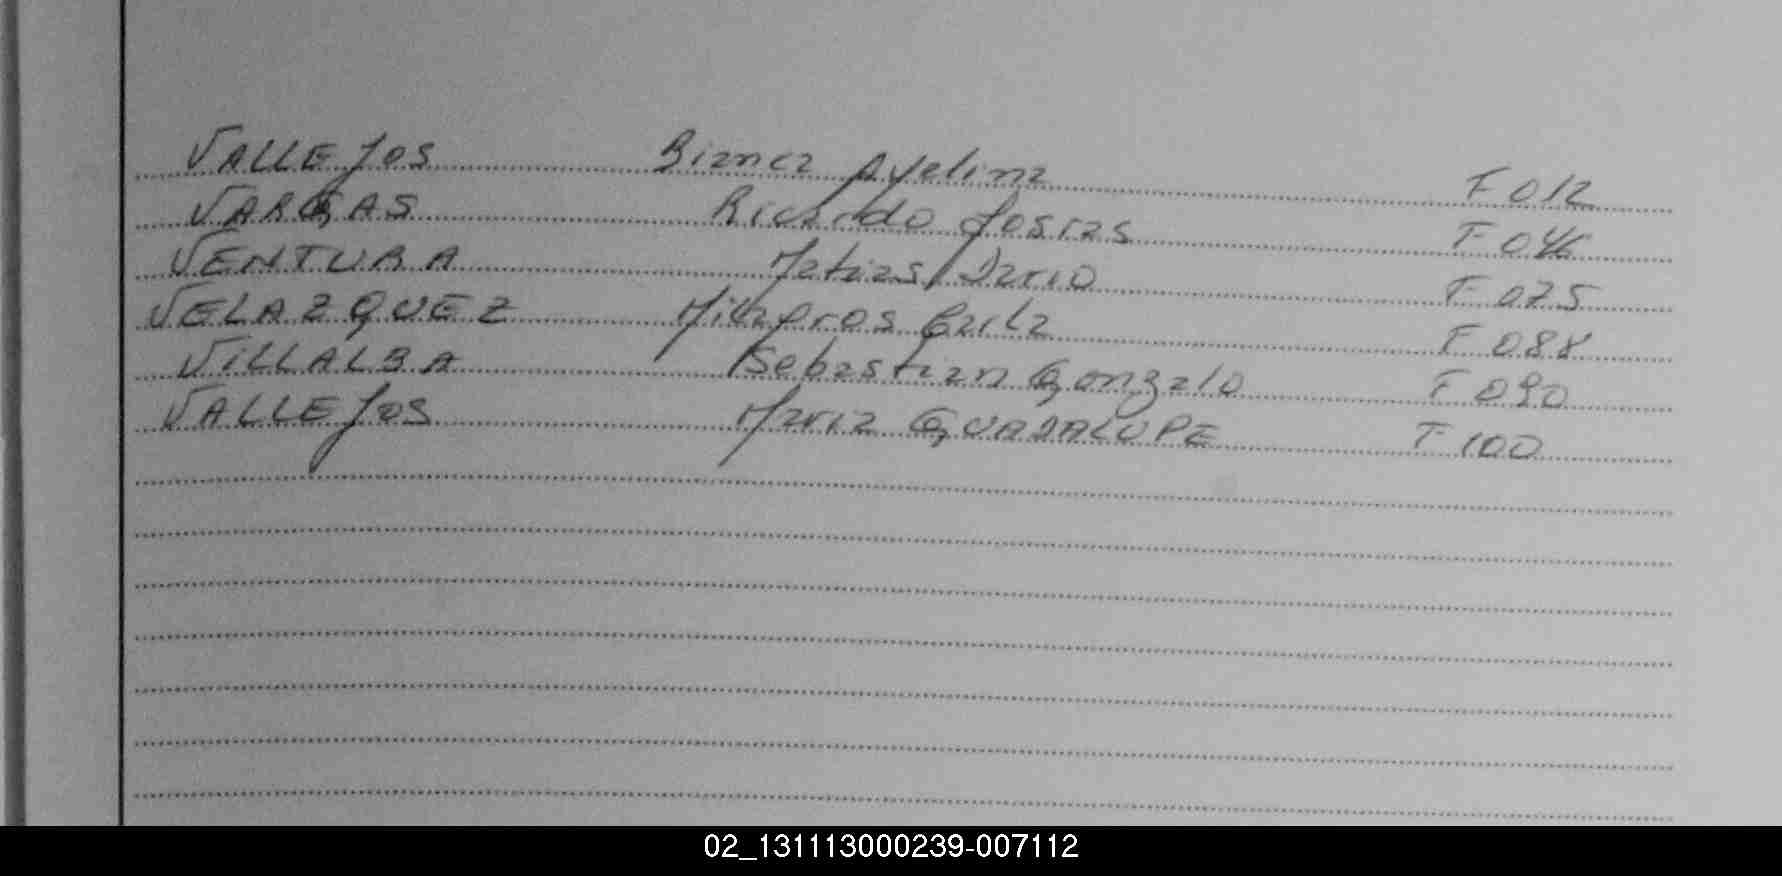 VALLEJOS Bianca Ayelina F 012
VARGAS Ricardo Josias F 046
VENTURA Matias Dario F 075
VELAZQUEZ Milagros Carla F 088
VILLALBA Sebastian Gonzalo F 090
VALLEJOS Maria GUADALUPE F 100
02_131113000239-007112